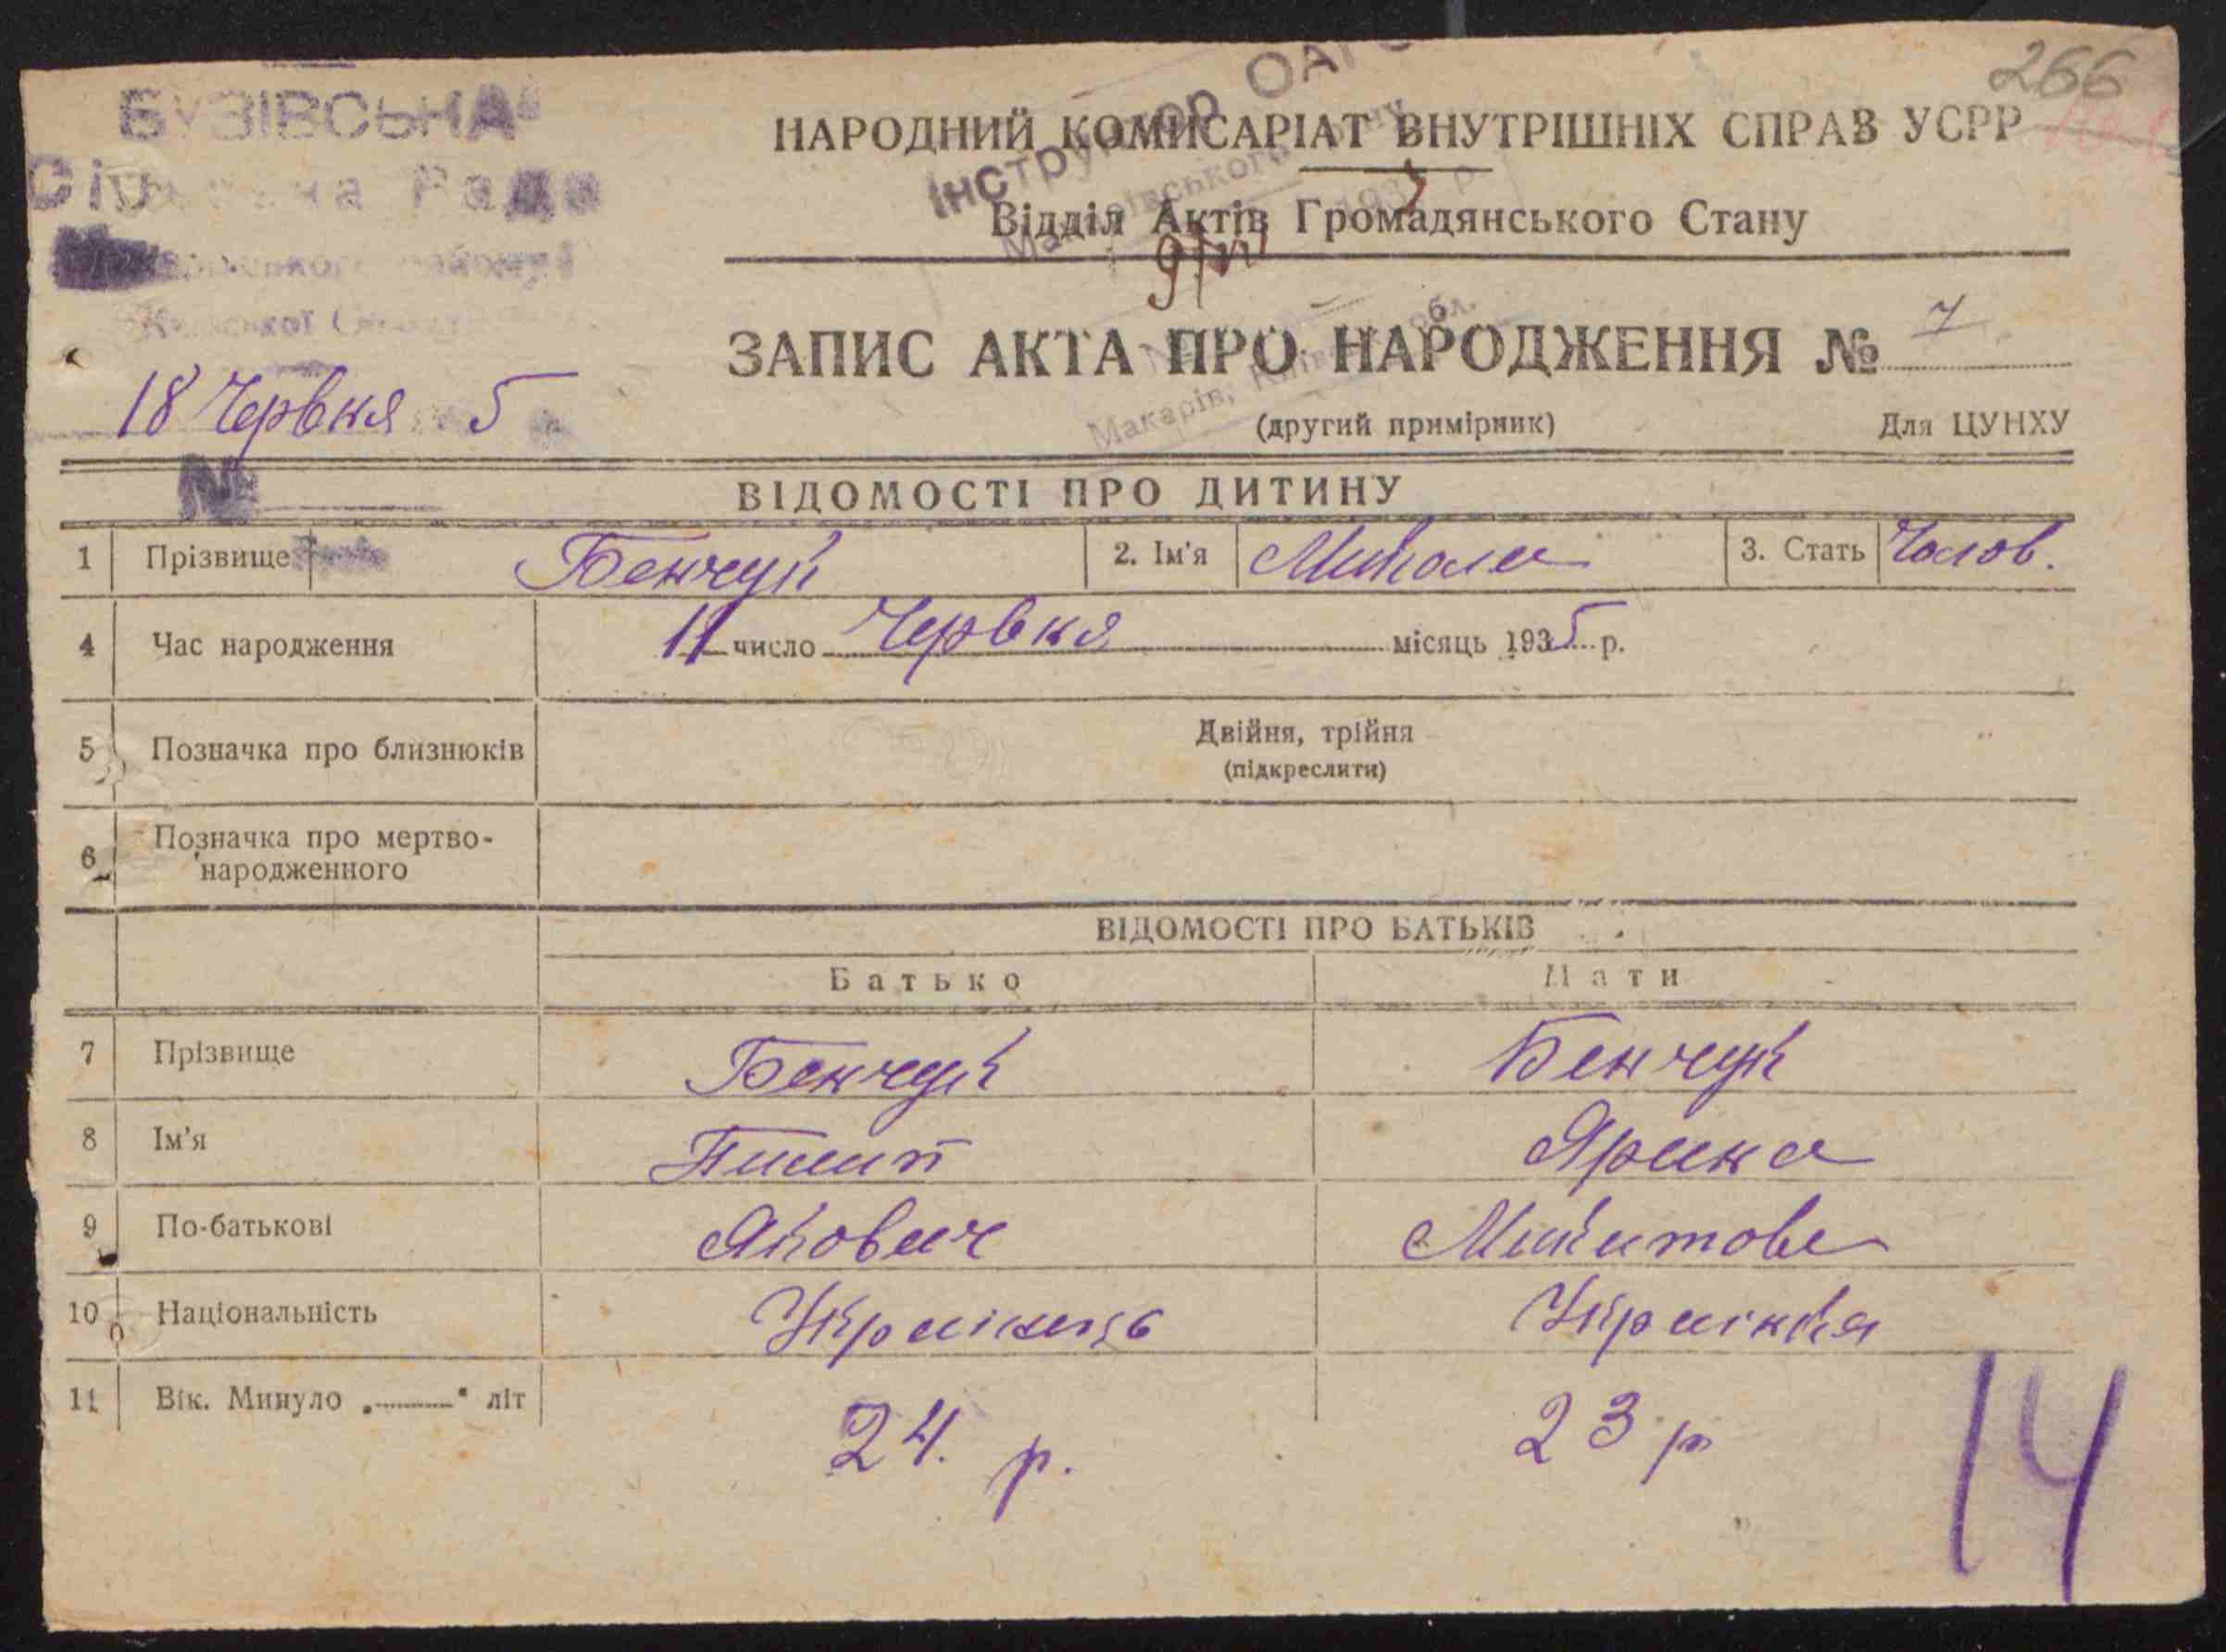 266
БУЗІВСЬКА
Рада
18 Червня 5
№
Інструктор ОАГС
НАРОДНИЙ КОМИСАРІАТ ВНУТРІШНІХ СПРАВ УСРР
Відділ Актів Громадянського Стану
ЗАПИС АКТА ПРО НАРОДЖЕННЯ № 7
Макарів, обл.
(другий примірник) Для ЦУНХУ
ВІДОМОСТІ ПРО ДИТИНУ
1 Прізвище Бенчук 2. Ім'я Микола 3. Стать Чолов.
4 Час народження 11 число Червня місяць 1935 р.
5 Позначка про близнюків Двійня, трійня
(підкреслити)
6 Позначка про мертво-
народженного
ВІДОМОСТІ ПРО БАТЬКІВ
Батько Мати
7 Прізвище Бенчук Бенчук
8 Ім'я Пилип Ярина
9 По-батькові Якович Микитова
10 Національність Українець Українка
11 Вік. Минуло „ " літ 24. р. 23 р
14